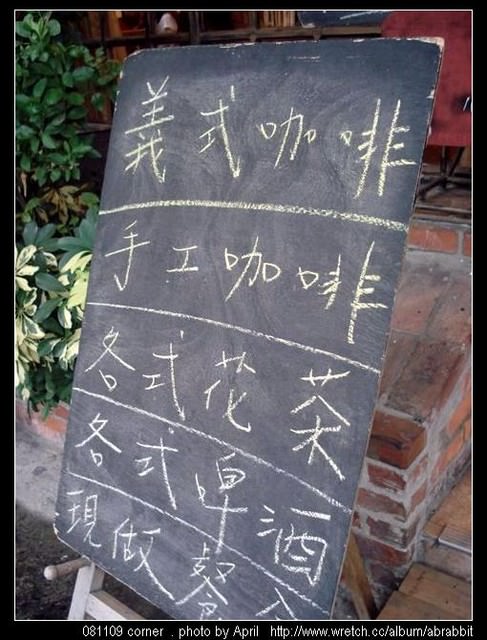 義式咖啡
手工咖啡
各式花茶
各式啤酒
現做餐
081109 corner . photo by April http://www.wretch.cc/album/abrabbit